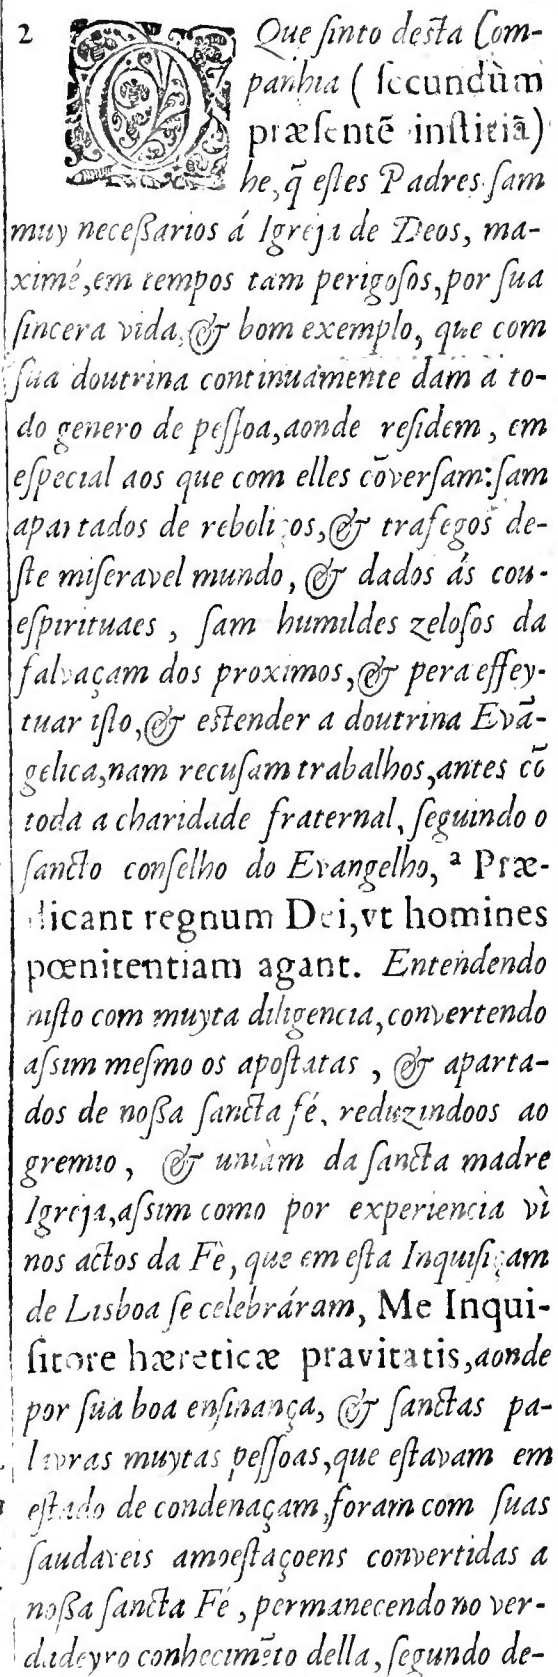 2 O Que ſinto deſta Com-
panhia ( ſecundùm
præſentẽ inſtitiã)
he, q̃ eſtes Padres ſam
muy neceßarios á Igreja de Deos, ma-
ximé, em tempos tam perigoſos, por ſua
ſincera vida, & bom exemplo, que com
ſua doutrina continuamente dam a to-
do genero de peſſoa, aonde reſidem, em
eſpecial aos que com elles cõverſam: ſam
apartados de reboliços, & trafegos de-
ſte miſeravel mundo, & dados ás cou-
eſpirituaes, ſam humildes zeloſos da
ſalvaçam dos proximos, & pera effey-
tuar iſto, & eſtender a doutrina Evã-
gelica, nam recuſam trabalhos, antes cõ
toda a charidade fraternal, ſeguindo o
ſancto conſelho do Evangelho, ª Præ-
dicant regnum Dei, vt homines
pœnitentiam agant. Entendendo
niſto com muyta diligencia, convertendo
aſsim meſmo os apoſtatas, & aparta-
dos de noßa ſancta fé, reduzindoos ao
gremio, & uniàm da ſancta madre
Igreja, aſsim como por experiencia vì
nos actos da Fè, que em eſta Inquiſiçam
de Lisboa ſe celebráram, Me Inqui-
ſitore hæreticæ pravitatis, aonde
por ſua boa enſinança, & ſanctas pa-
lavras muytas peſſoas, que eſtavam em
eſtado de condenaçam, foram com ſuas
ſaudaveis amoeſtaçoens convertidas a
noßa ſancta Fé, permanecendo no ver-
dadeyro conhecimẽto della, ſegundo de-